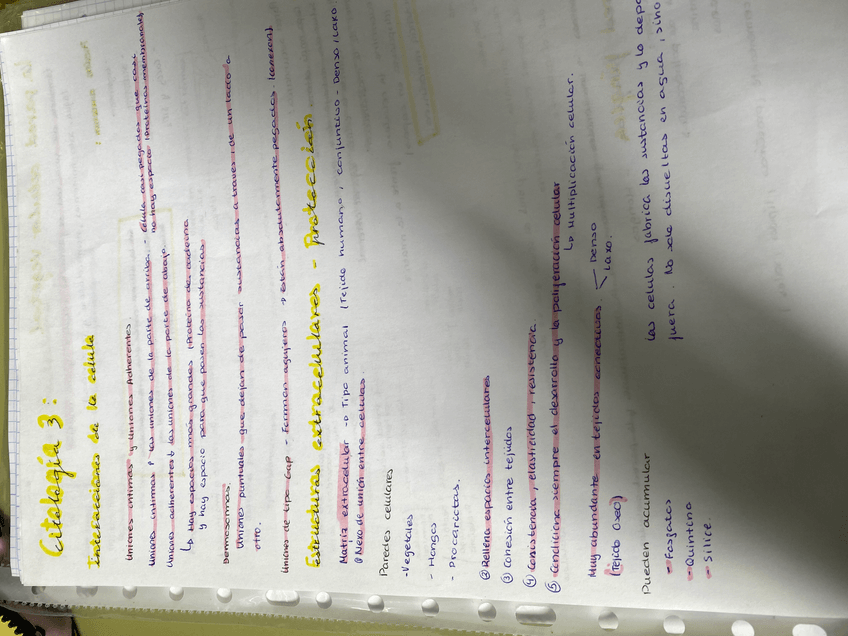 Citología 3:
Interacciones de la célula
Uniones intimas y uniones Adherentes.
Uniones intimas ↑ las uniones de la parte de arriba. - Célula tan pegadas que casi no hay espacio (Proteínas membranales)
Uniones adherentes ↓ las uniones de la parte de abajo.
↳ Hay espacios más grandes (Proteína de cadeina
y hay espacio para que pasen las sustancias
Desmosomas.
Uniones puntuales que dejan de pasar sustancias a traves, de un lado a
otro.
Uniones de tipo Gap - Forman agujeros → Están absolutamente pegadas (conexon)
Estructuras extracelulares - Protección
Matriz extracelular → Tipo animal (Tejido humano, conjuntivo - Denso/Laxo
① Nexo de unión entre células.
Paredes celulares
- Vegetales
- Hongos
- Procariotas.
② Relleno espacios intercelulares
③ Conexión entre tejidos
④ Consistencia, elasticidad, resistencia.
⑤ Condiciona siempre el desarrollo y la poliferación celular
↳ Multiplicación celular.
Muy abundante en tejidos conectivos < Denso
Laxo.
(Tejido óseo)
Pueden acumular
- Fosfatos
- Quinina
- Sílice.
las celulas fabrica las sustancias y lo depo
fuera. No solo disueltas en agua, sino